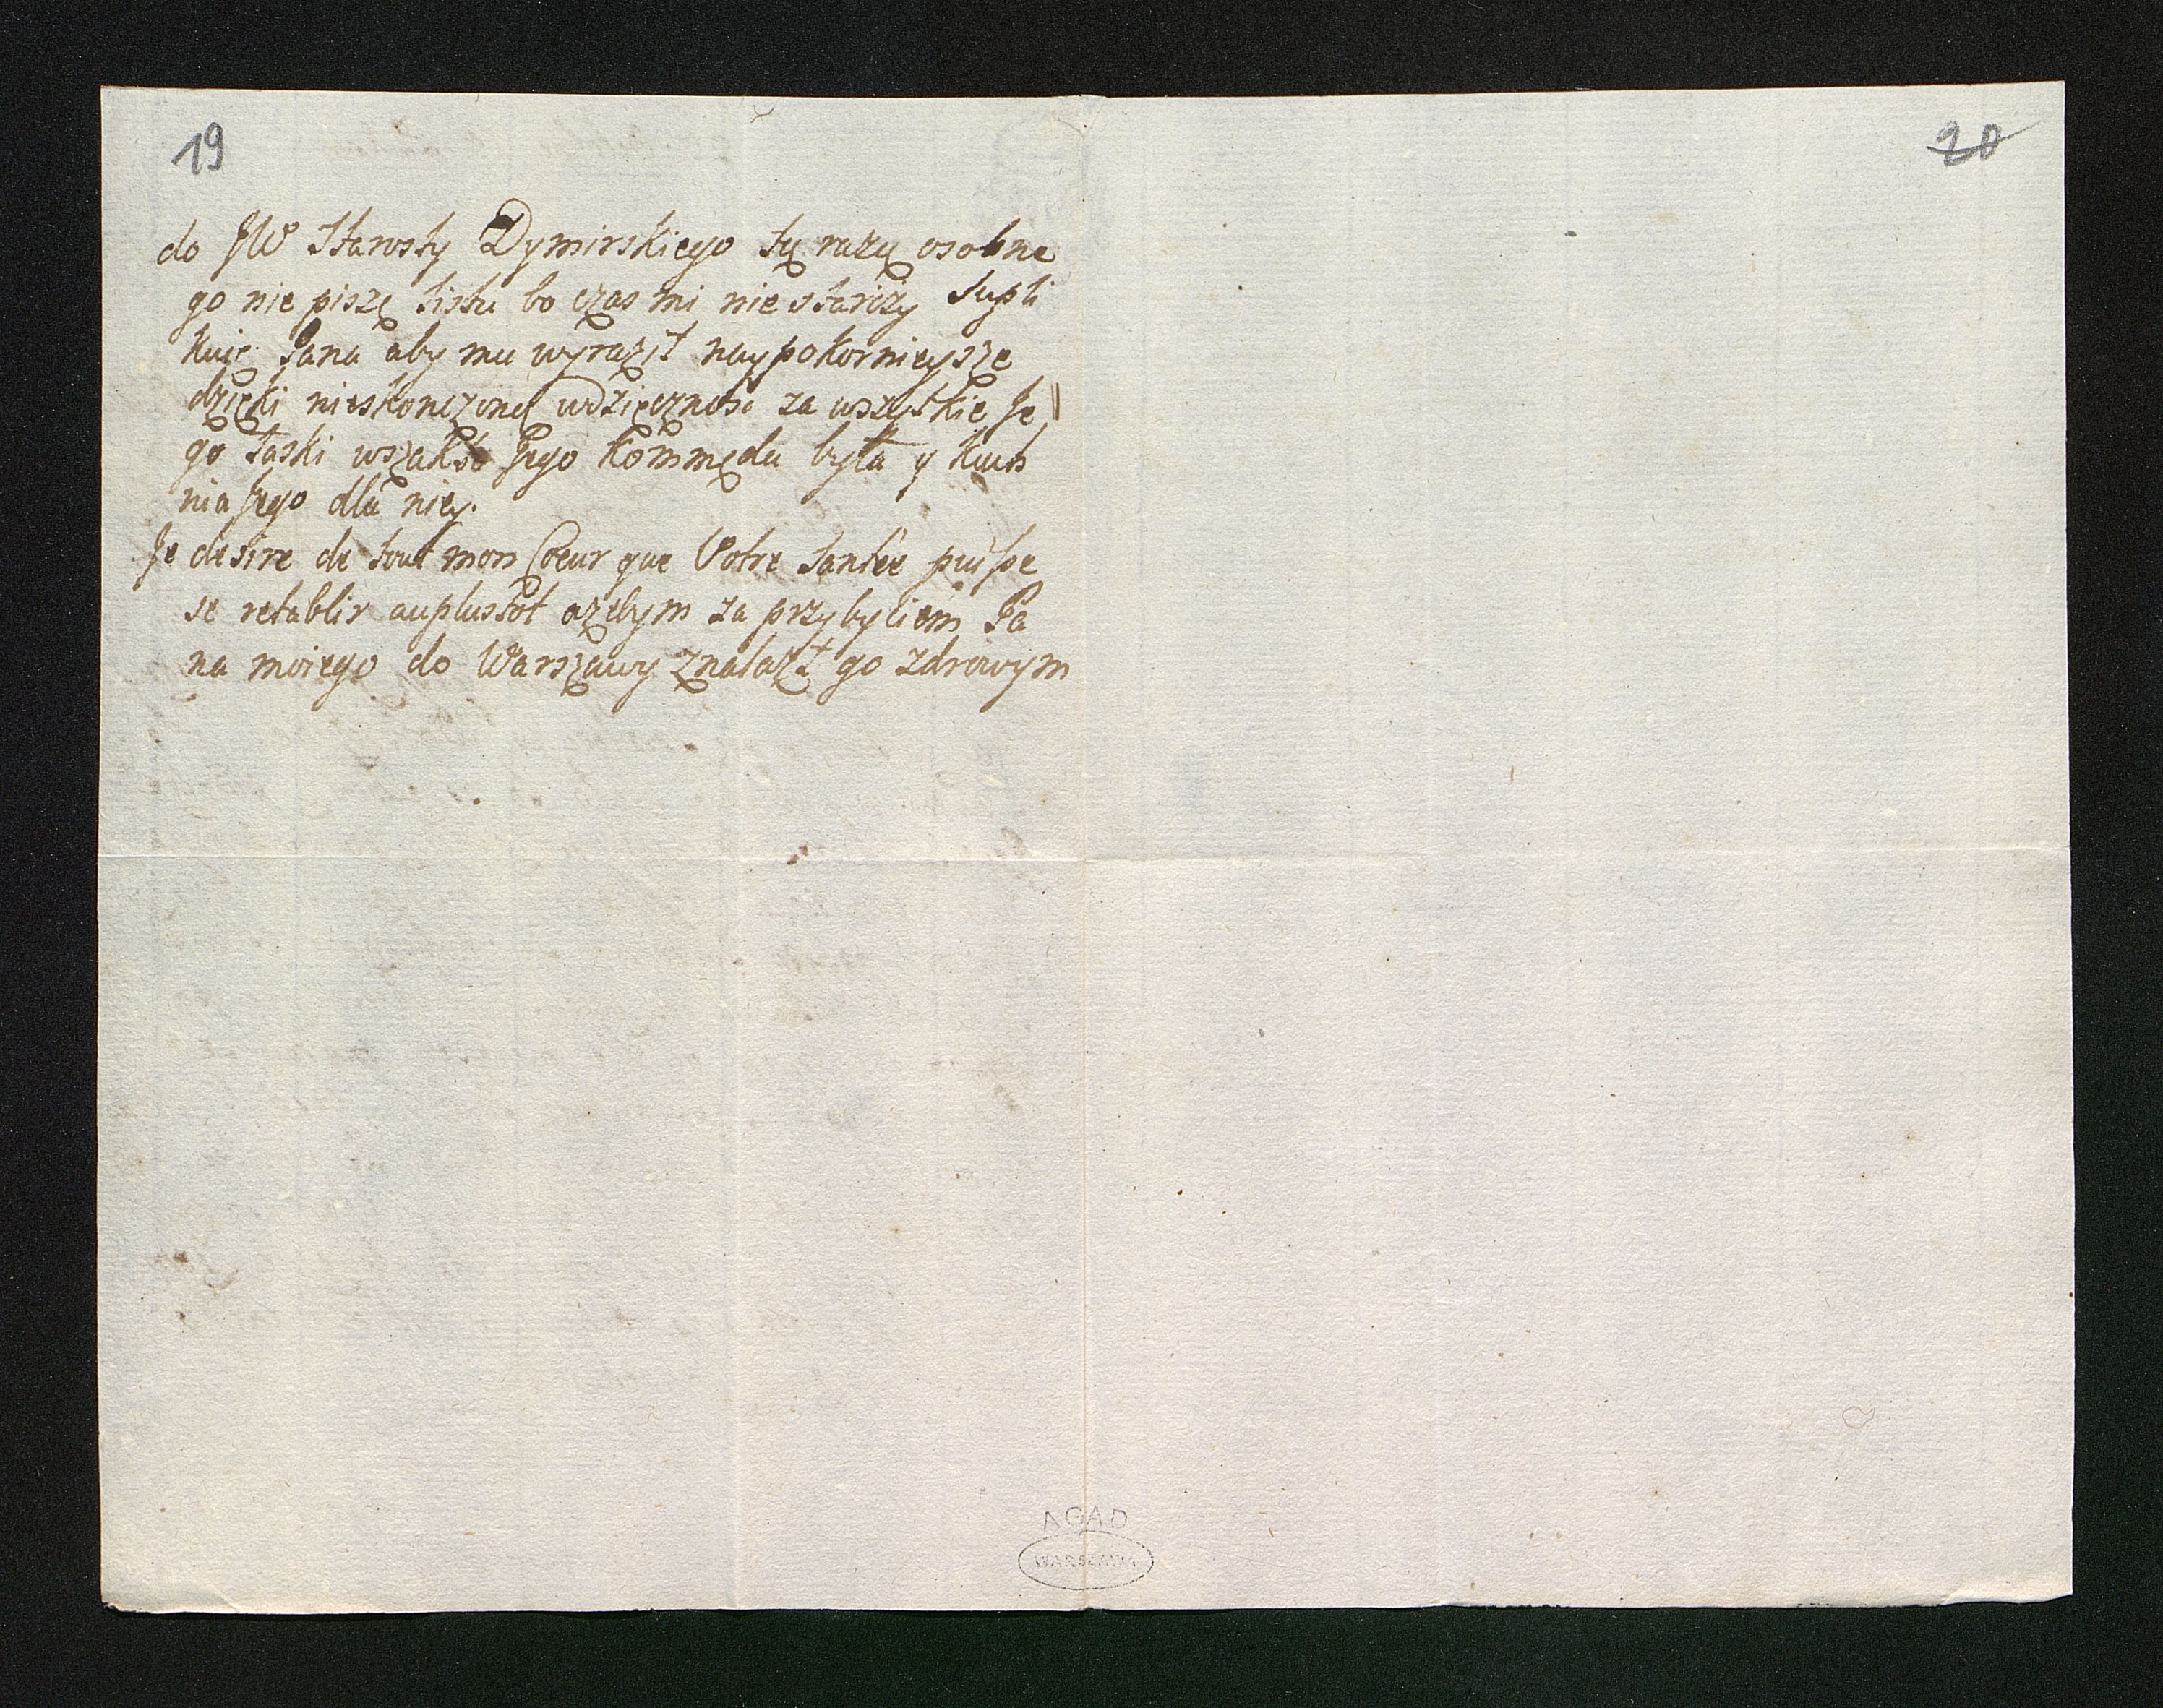 19
20
do JW Starosty Dymirskiego tą razą osobne
go nie piszę listu bo czas mi nie starczy Supli
kuię Pana aby mu wyraził naypokornieysze
dzięki nieskonczoną wdzięcznosc za wszytkie Je
go łaski wszakże Jego Kommęda była y kuch
nia Jego dla niey.
Je desire de tout mon Coeur que Votre Santée puisse
se retablir auplustot azebym za przybyciem Pa
na moiego do Warszawy znalazł go zdrowym
AGAD
WARSZAWA